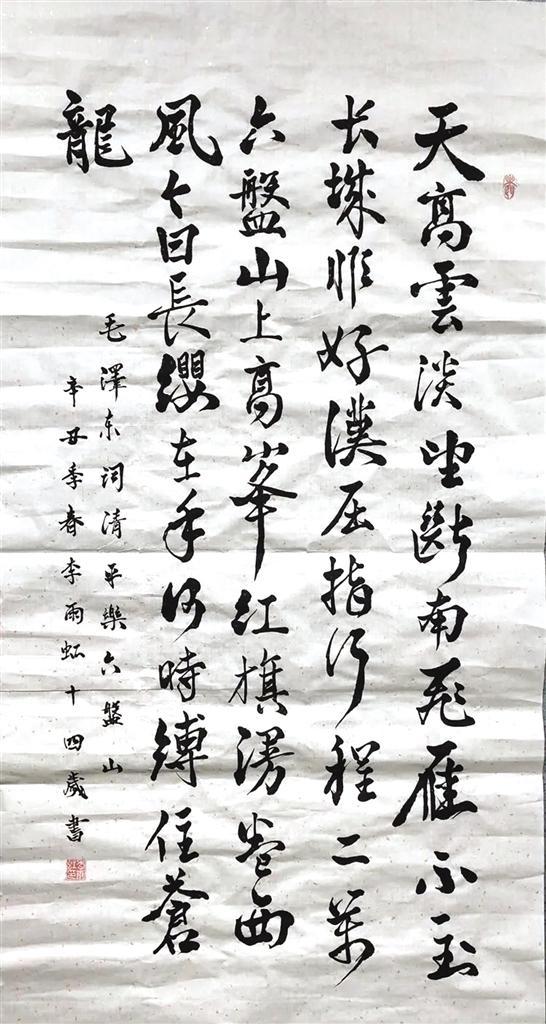 天高雲淡望斷南飛雁不到
长城非好漢屈指行程二萬
六盤山上高峯红旗漫卷西
風今日長纓在手何時縛住蒼
龍
毛澤东词清平樂六盤山
辛丑季春李雨虹十四歲書